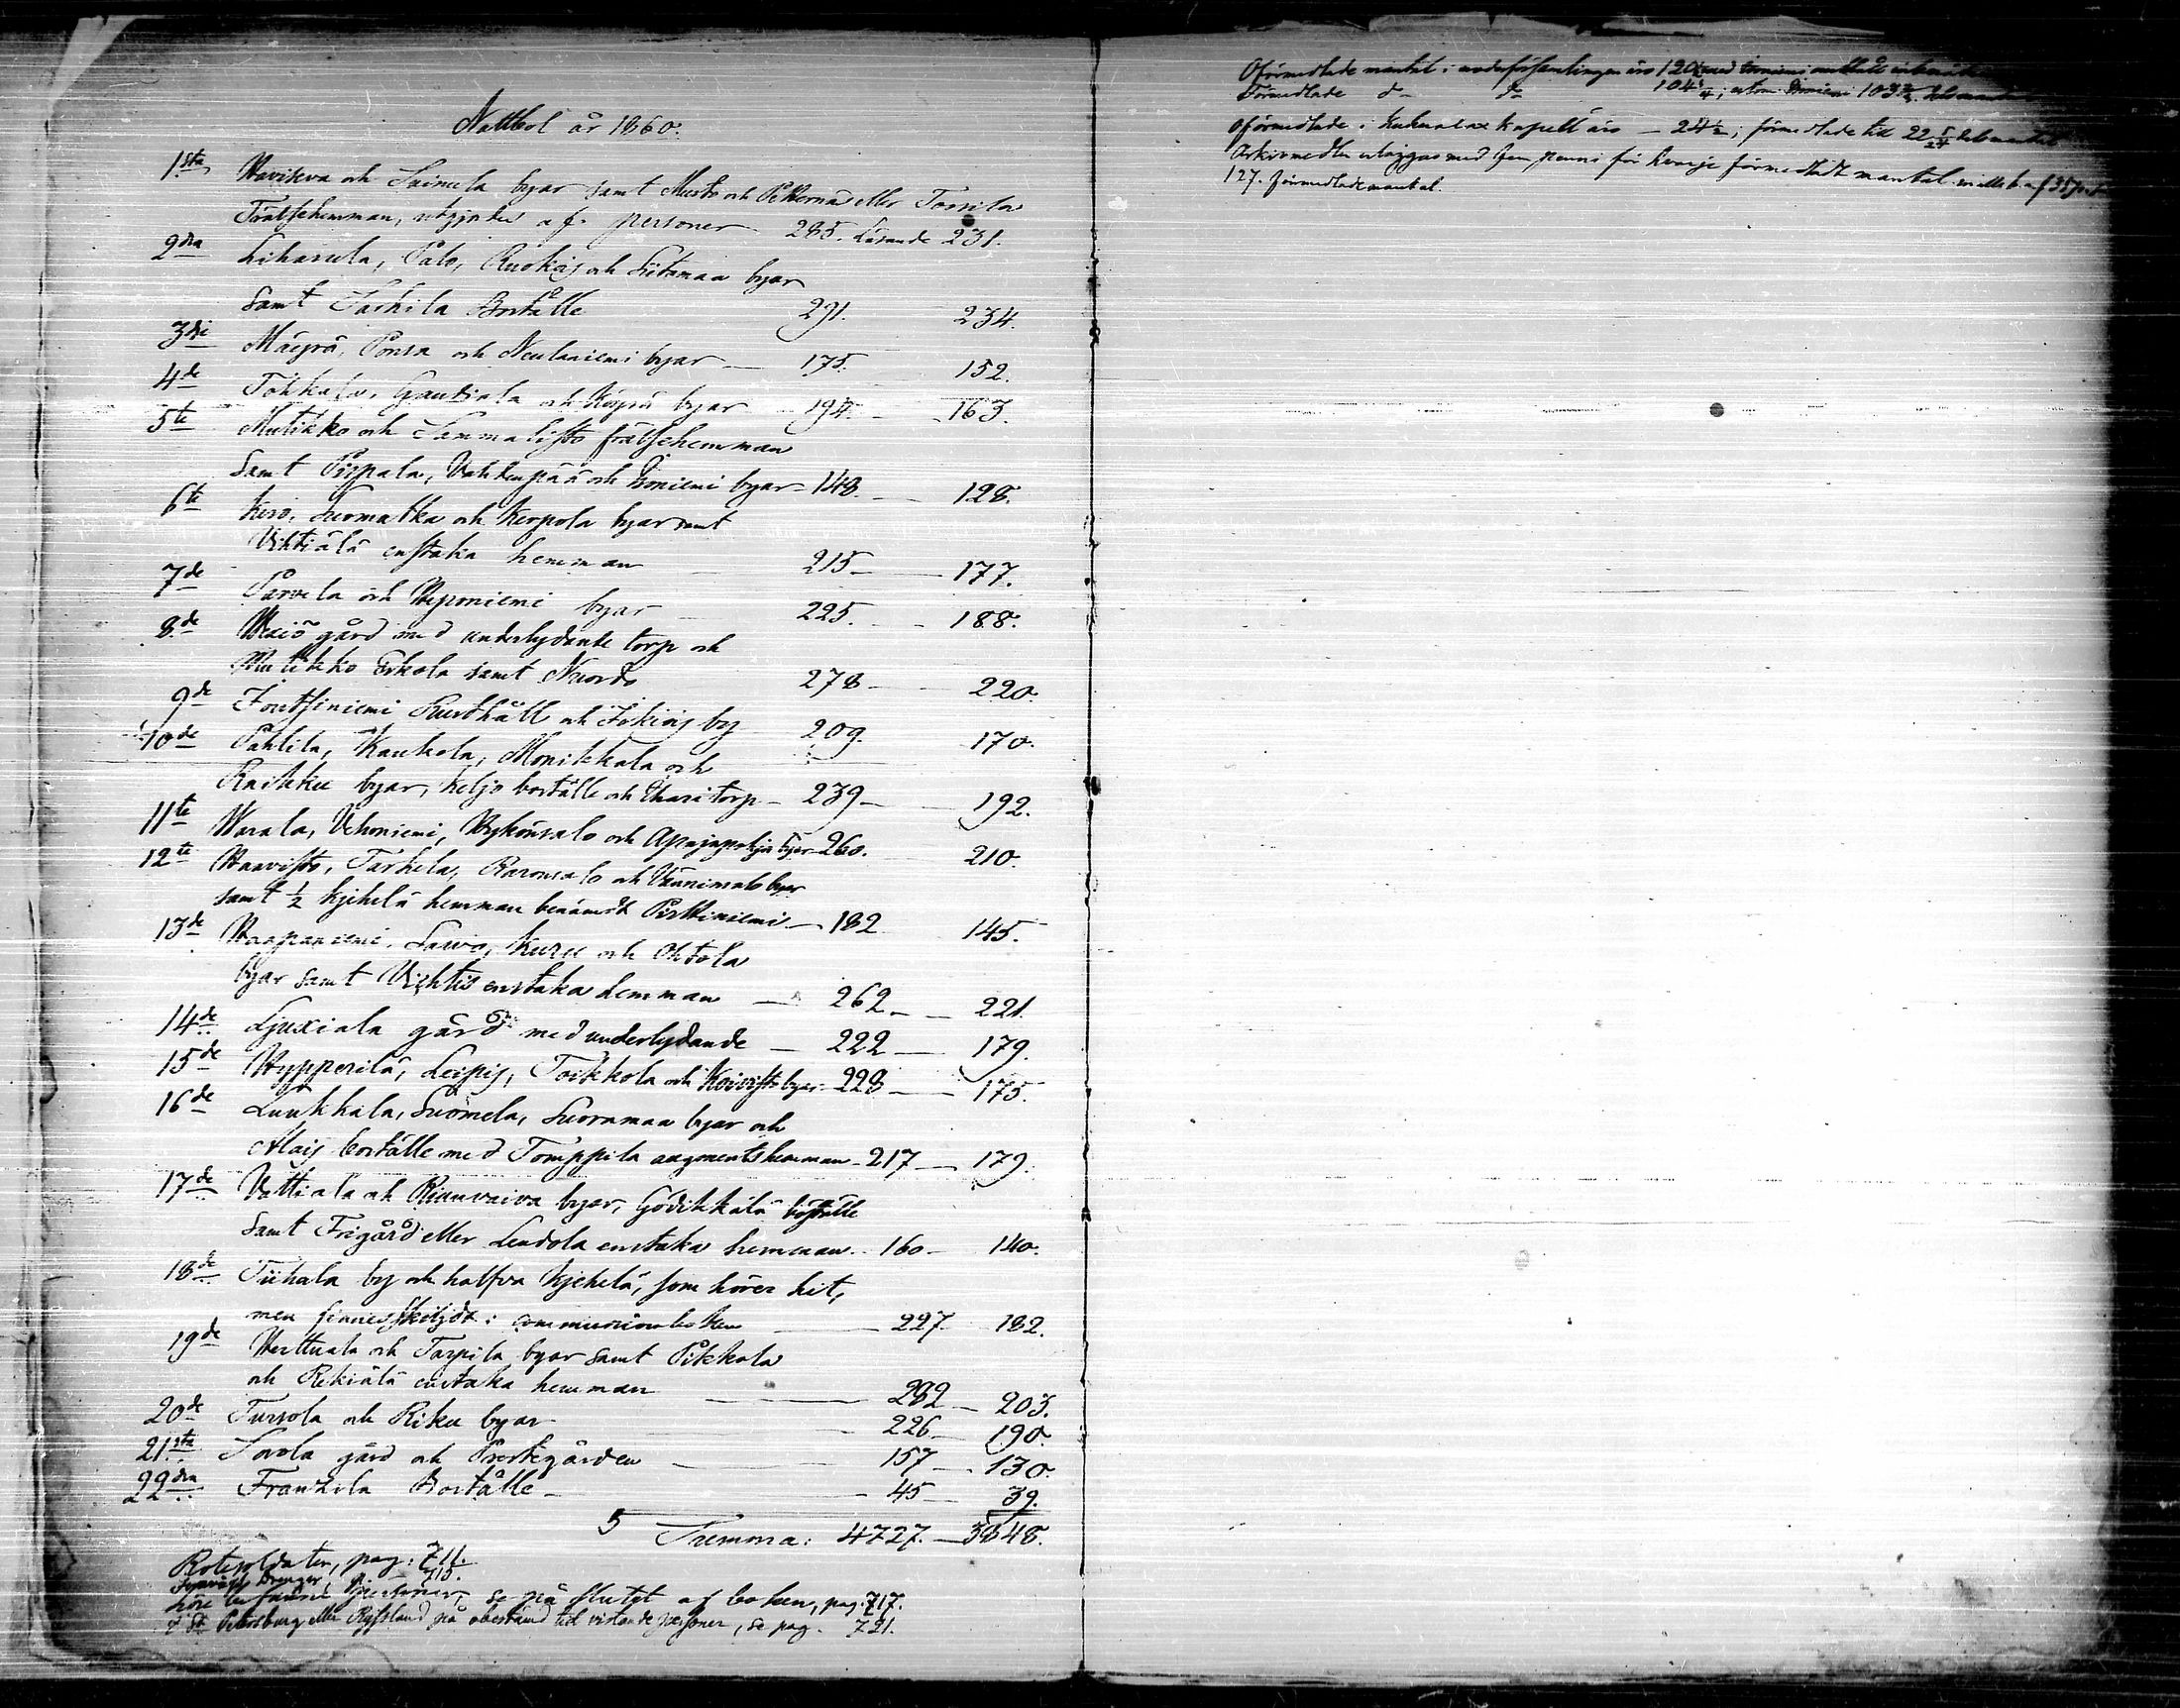 Nattbol år 1860.
1sta Haviseva och Saimela byar samt Musto och Pekkerna eller Tossila
Frälsehemman, utgjordes af personer 285. Läsande 231.
2dra Liharula, Palo, Ruokis och Siitamaa byar
samt Sarkila Boställe 291. 234.
3dje Mäyrä, Ponsa och Neulaniemi byar — 175. 152.
4de Toikkala, Gaudiala och Köyrä byar 194. — 163.
5te Mutikko och Sammalisto frälsehemman
samt Pispala, Vahdenpää och Eoniemi byar — 148. — 128.
6te Kiro, Suomatka och Kerpola byar samt
Vihtiälä enstaka hemman — 215 — 177.
7de Sarvela och Heponiemi byar — 225. — 188.
8de Wexiö gård med underlydande torp och
Mutikko Eskola samt Nuordo 278 — 220.
9de Joutsiniemi Rusthåll och Jokiois by 209. 170.
10de Pahlila, Kaukola, Monikkala och
Raikku byar, Keljo boställe och Uhari torp — 239 — 192.
11te Warala, Vehoniemi, Wykönsalo och Apajapohja byar 260. 210.
12te Haavisto, Tarkela, Raronsalo och Vännisalo byar
samt 1/2 Kjehelä hemman benämdt Pirttiniemi — 182 145.
13de Haapaniemi, Sawo, Kuru och Ohtola
byar samt Vihtis enstaka hemman — 262 — 221.
14de Ljuxiala gård med underlydande — 222 — 179.
15de Hypperilä, Leipis, Toikkola och Koivisto byar 228 — 175.
16de Luukkala, Suomela, Suoramaa byar och
Alais boställe med Tomppila augmentshemman — 217 — 179.
17de Vattiala och Riunvaiva byar, Gödikkälä boställe
samt Frigård eller Lendola enstaka hemman 160 — 140.
18de Tiihala by och halfva Kjehelä, som hörer hit,
men finnes skiljdt i communionboken — 227. 182.
19de Herttuala och Tarpila byar samt Pikkola
och Rekiälä enstaka hemman — 282 — 203.
20de Tursola och Riku byar — 226 — 190.
21sta Sorola gård och Prestegården — 157 — 130.
22dra Frankila Boställe — 45 — 39.
5 Summa: 4727. — 3848.
Rotesoldater, pag: 711.
715.
personer, se på slutet af boken, pag: 717.
i St Petersburg eller Ryssland på obestämd tid vistande personer, se pag. 721.
Oförmedlade mantal i moderförsamlingen äro 120 1/2 med
Förmedlade do do 104 1/4; utom Eoniemi 103 3/4
Oförmedlade i Kuhmalax kapell äro — 24 1/2; förmedlade till 22 5/24 dels mantal
Arkivmedlen erläggas med fem penni för hvarje förmedladt mantal
127. förmedlade mantal.